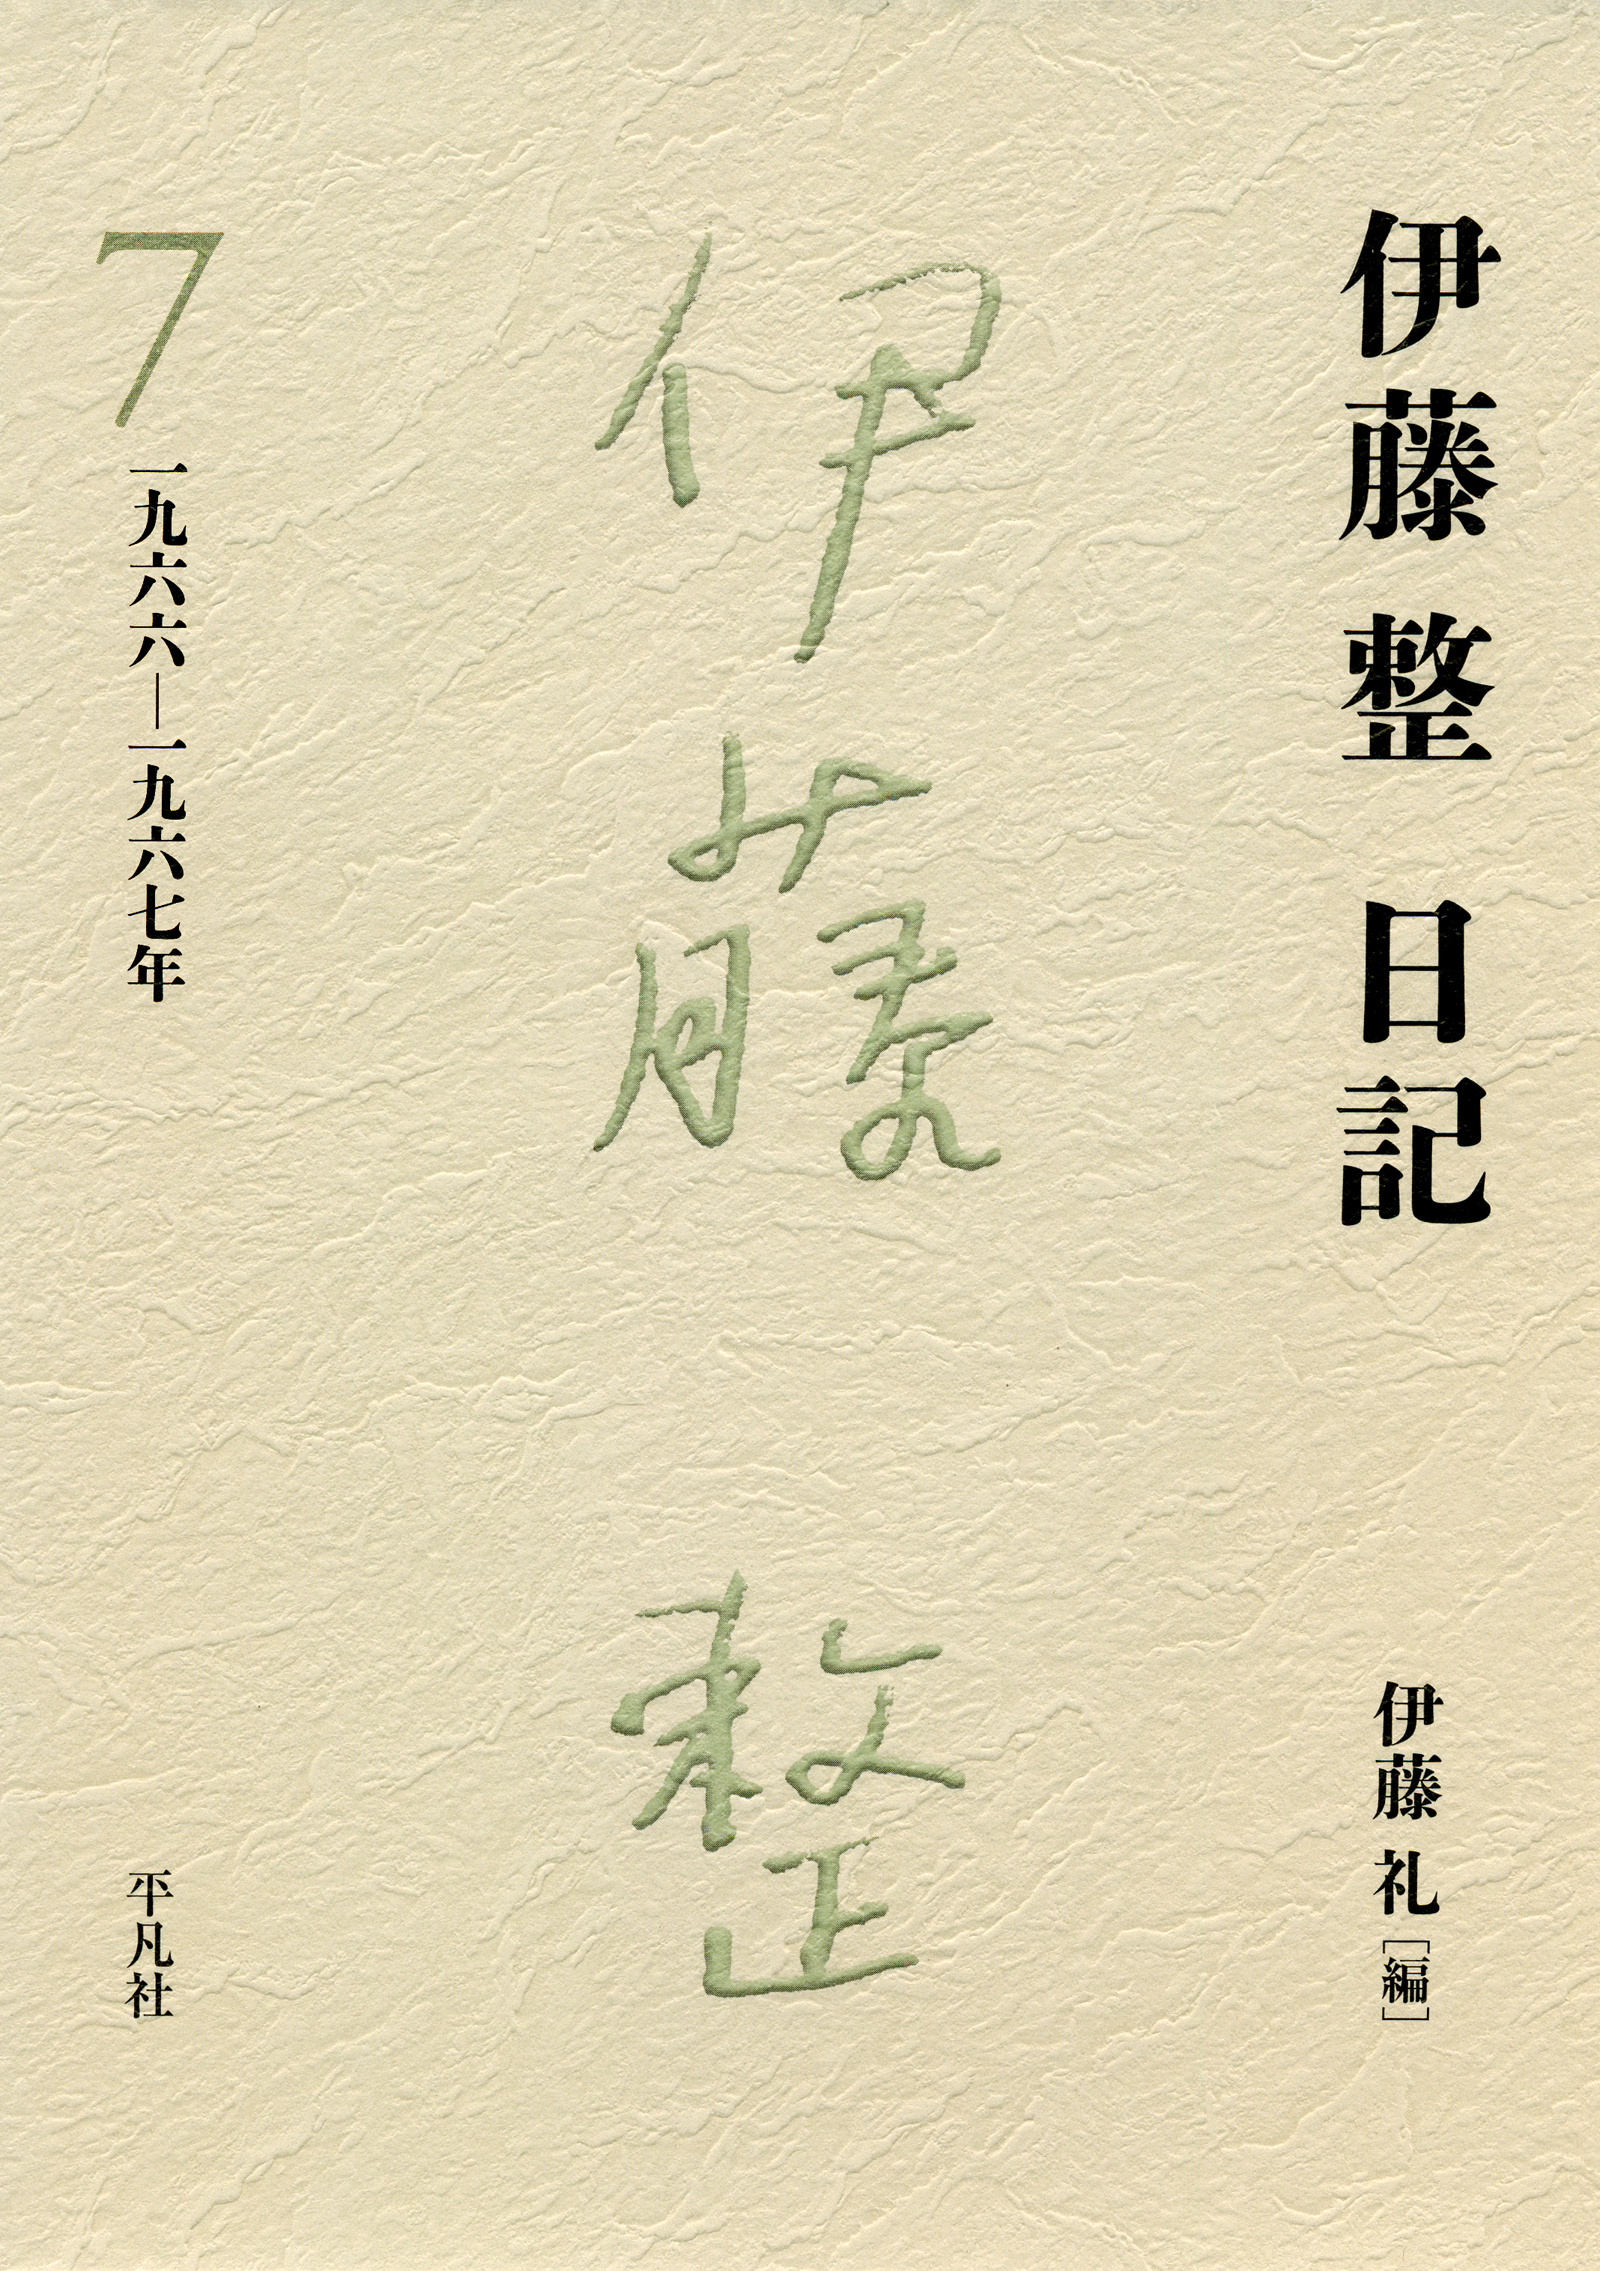 伊藤 整 日記
伊藤 礼［編］
伊藤 整
7
一九六六―一九六七年
平凡社